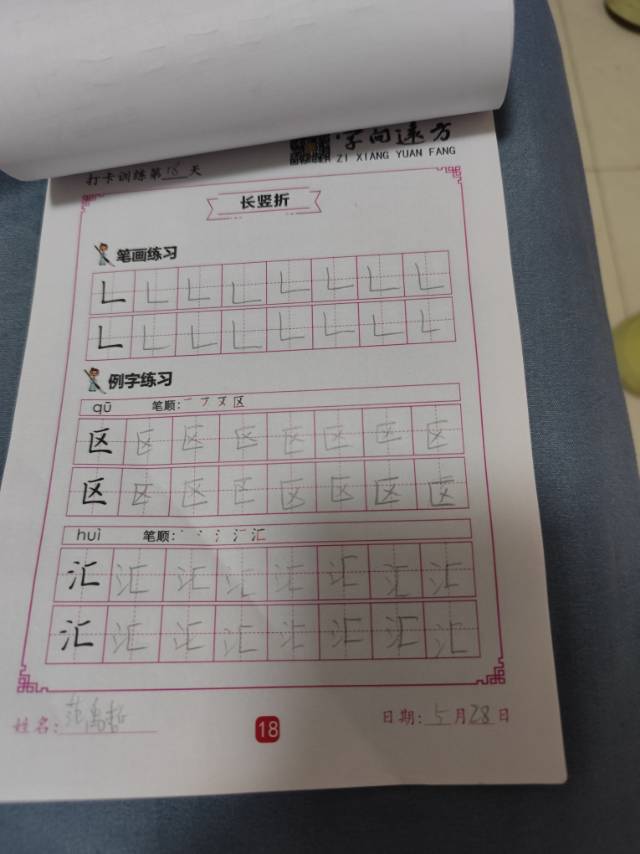 字向远方
ZI XIANG YUAN FANG
打卡训练第18天
长竖折
笔画练习
例字练习
qū 笔顺: 一 フ 又 区
区 区 区 区 区 区 区 区
区 区 区 区 区 区 区 区
huì 笔顺: 丶 冫 氵 汇 汇
汇 汇 汇 汇 汇 汇 汇 汇
汇 汇 汇 汇 汇 汇 汇 汇
姓名:
18
日期: 5月28日